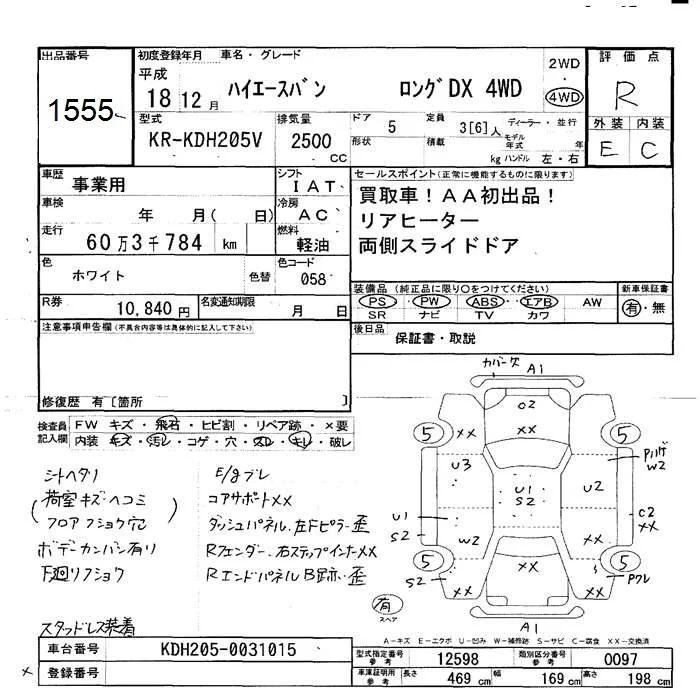 出品番号
1555
初度登録年月 車名・グレード
平成
18 12 月 ハイエースバン ロングDX 4WD
2WD
・
4WD
型式 排気量 ドア 定員 ディーラー・並行
KR-KDH205V 2500 CC 5 3[6]人
形状 積載 kg モデル年式 年
ハンドル 左・右
評価点
R
外装 内装
E C
車歴 事業用
シフト IAT
車検 年 月( 日)
冷房 AC
走行 60万3千784 km
燃料 軽油
色 ホワイト 色替
色コード 058
R券 10,840円 名変通知期限 月 日
セールスポイント(正常に機能するものに限ります)
買取車！AA初出品！
リアヒーター
両側スライドドア
装備品(純正品に限り○をつけてください) 新車保証書
PS・PW・ABS・エアB AW 有・無
SR ナビ TV カワ
後日品 保証書・取説
注意事項申告欄(不具合内容等は具体的に記入して下さい)
修復歴 有〔箇所 〕
検査員記入欄
FW キズ・飛石・ヒビ割・リペア跡・×要
内装 キズ・汚レ・コゲ・穴・スレ・キレ・破レ
シートヘタリ
(荷室キズ・ヘコミ
フロアフショク穴)
ボデーカンバン有リ
下廻リフショク
スタッドレス装着
E/gブレ
コアサポートXX
ダッシュパネル.左Fピラー歪
Rフェンダー.右ステップインナーXX
RエンドパネルB跡・歪
カバー欠 A1
C2
5 XX XX 5
U3 U1 S2 U2 Pハゲ W2
U1 S2 W2 XX C2 XX
5 XX 5
S2 XX XX Pワレ
有
スペア
A1
A-キズ E-エクボ U-凹み W-補修跡 S-サビ C-腐食 XX-交換済
車台番号 KDH205-0031015
× 登録番号
型式指定番号 参考 12598 類別区分番号 参考 0097
車庫証明用 参考 長さ 469 cm 幅 169 cm 高さ 198 cm